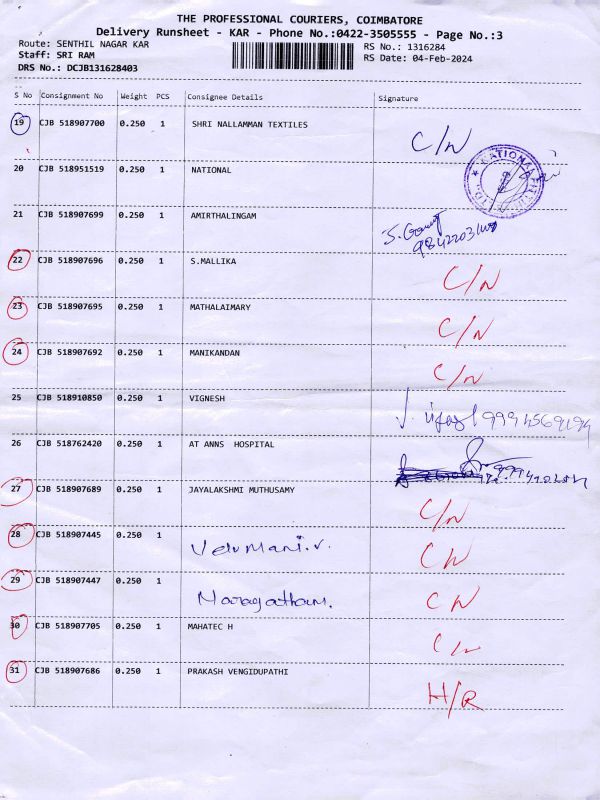 THE PROFESSIONAL COURIERS, COIMBATORE
Delivery Runsheet - KAR - Phone No.:0422-3505555 - Page No.:3
Route: SENTHIL NAGAR KAR
RS No.: 1316284
Staff: SRI RAM
RS Date: 04-Feb-2024
DRS No.: DCJB131628403
S No Consignment No Weight PCS Consignee Details Signature
19 CJB 518907700 0.250 1 SHRI NALLAMMAN TEXTILES C/N
20 CJB 518951519 0.250 1 NATIONAL NATIONAL
21 CJB 518907699 0.250 1 AMIRTHALINGAM
22 CJB 518907696 0.250 1 S.MALLIKA C/N
23 CJB 518907695 0.250 1 MATHALAIMARY C/N
24 CJB 518907692 0.250 1 MANIKANDAN C/N
25 CJB 518910850 0.250 1 VIGNESH
26 CJB 518762420 0.250 1 AT ANNS HOSPITAL
27 CJB 518907689 0.250 1 JAYALAKSHMI MUTHUSAMY C/N
28 CJB 518907445 0.250 1 Velumani.v. C/N
29 CJB 518907447 0.250 1 Maragatham. C/N
30 CJB 518907705 0.250 1 MAHATEC H C/N
31 CJB 518907686 0.250 1 PRAKASH VENGIDUPATHI H/R